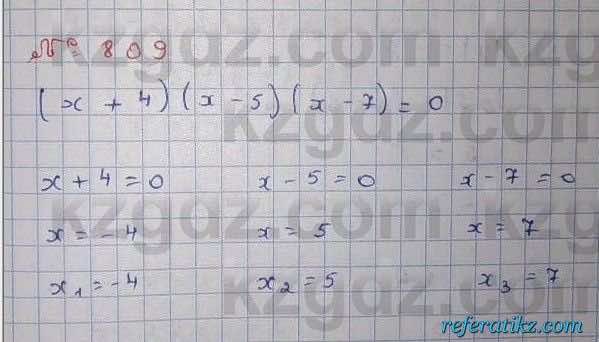 kzgdz.com
№ 809
(x + 4)(x - 5)(x - 7) = 0
kzgdz.com
x + 4 = 0 x - 5 = 0 x - 7 = 0
kzgdz.com
x = -4 x = 5 x = 7
kzgdz.com
x₁ = -4 x₂ = 5 x₃ = 7
referatikz.com